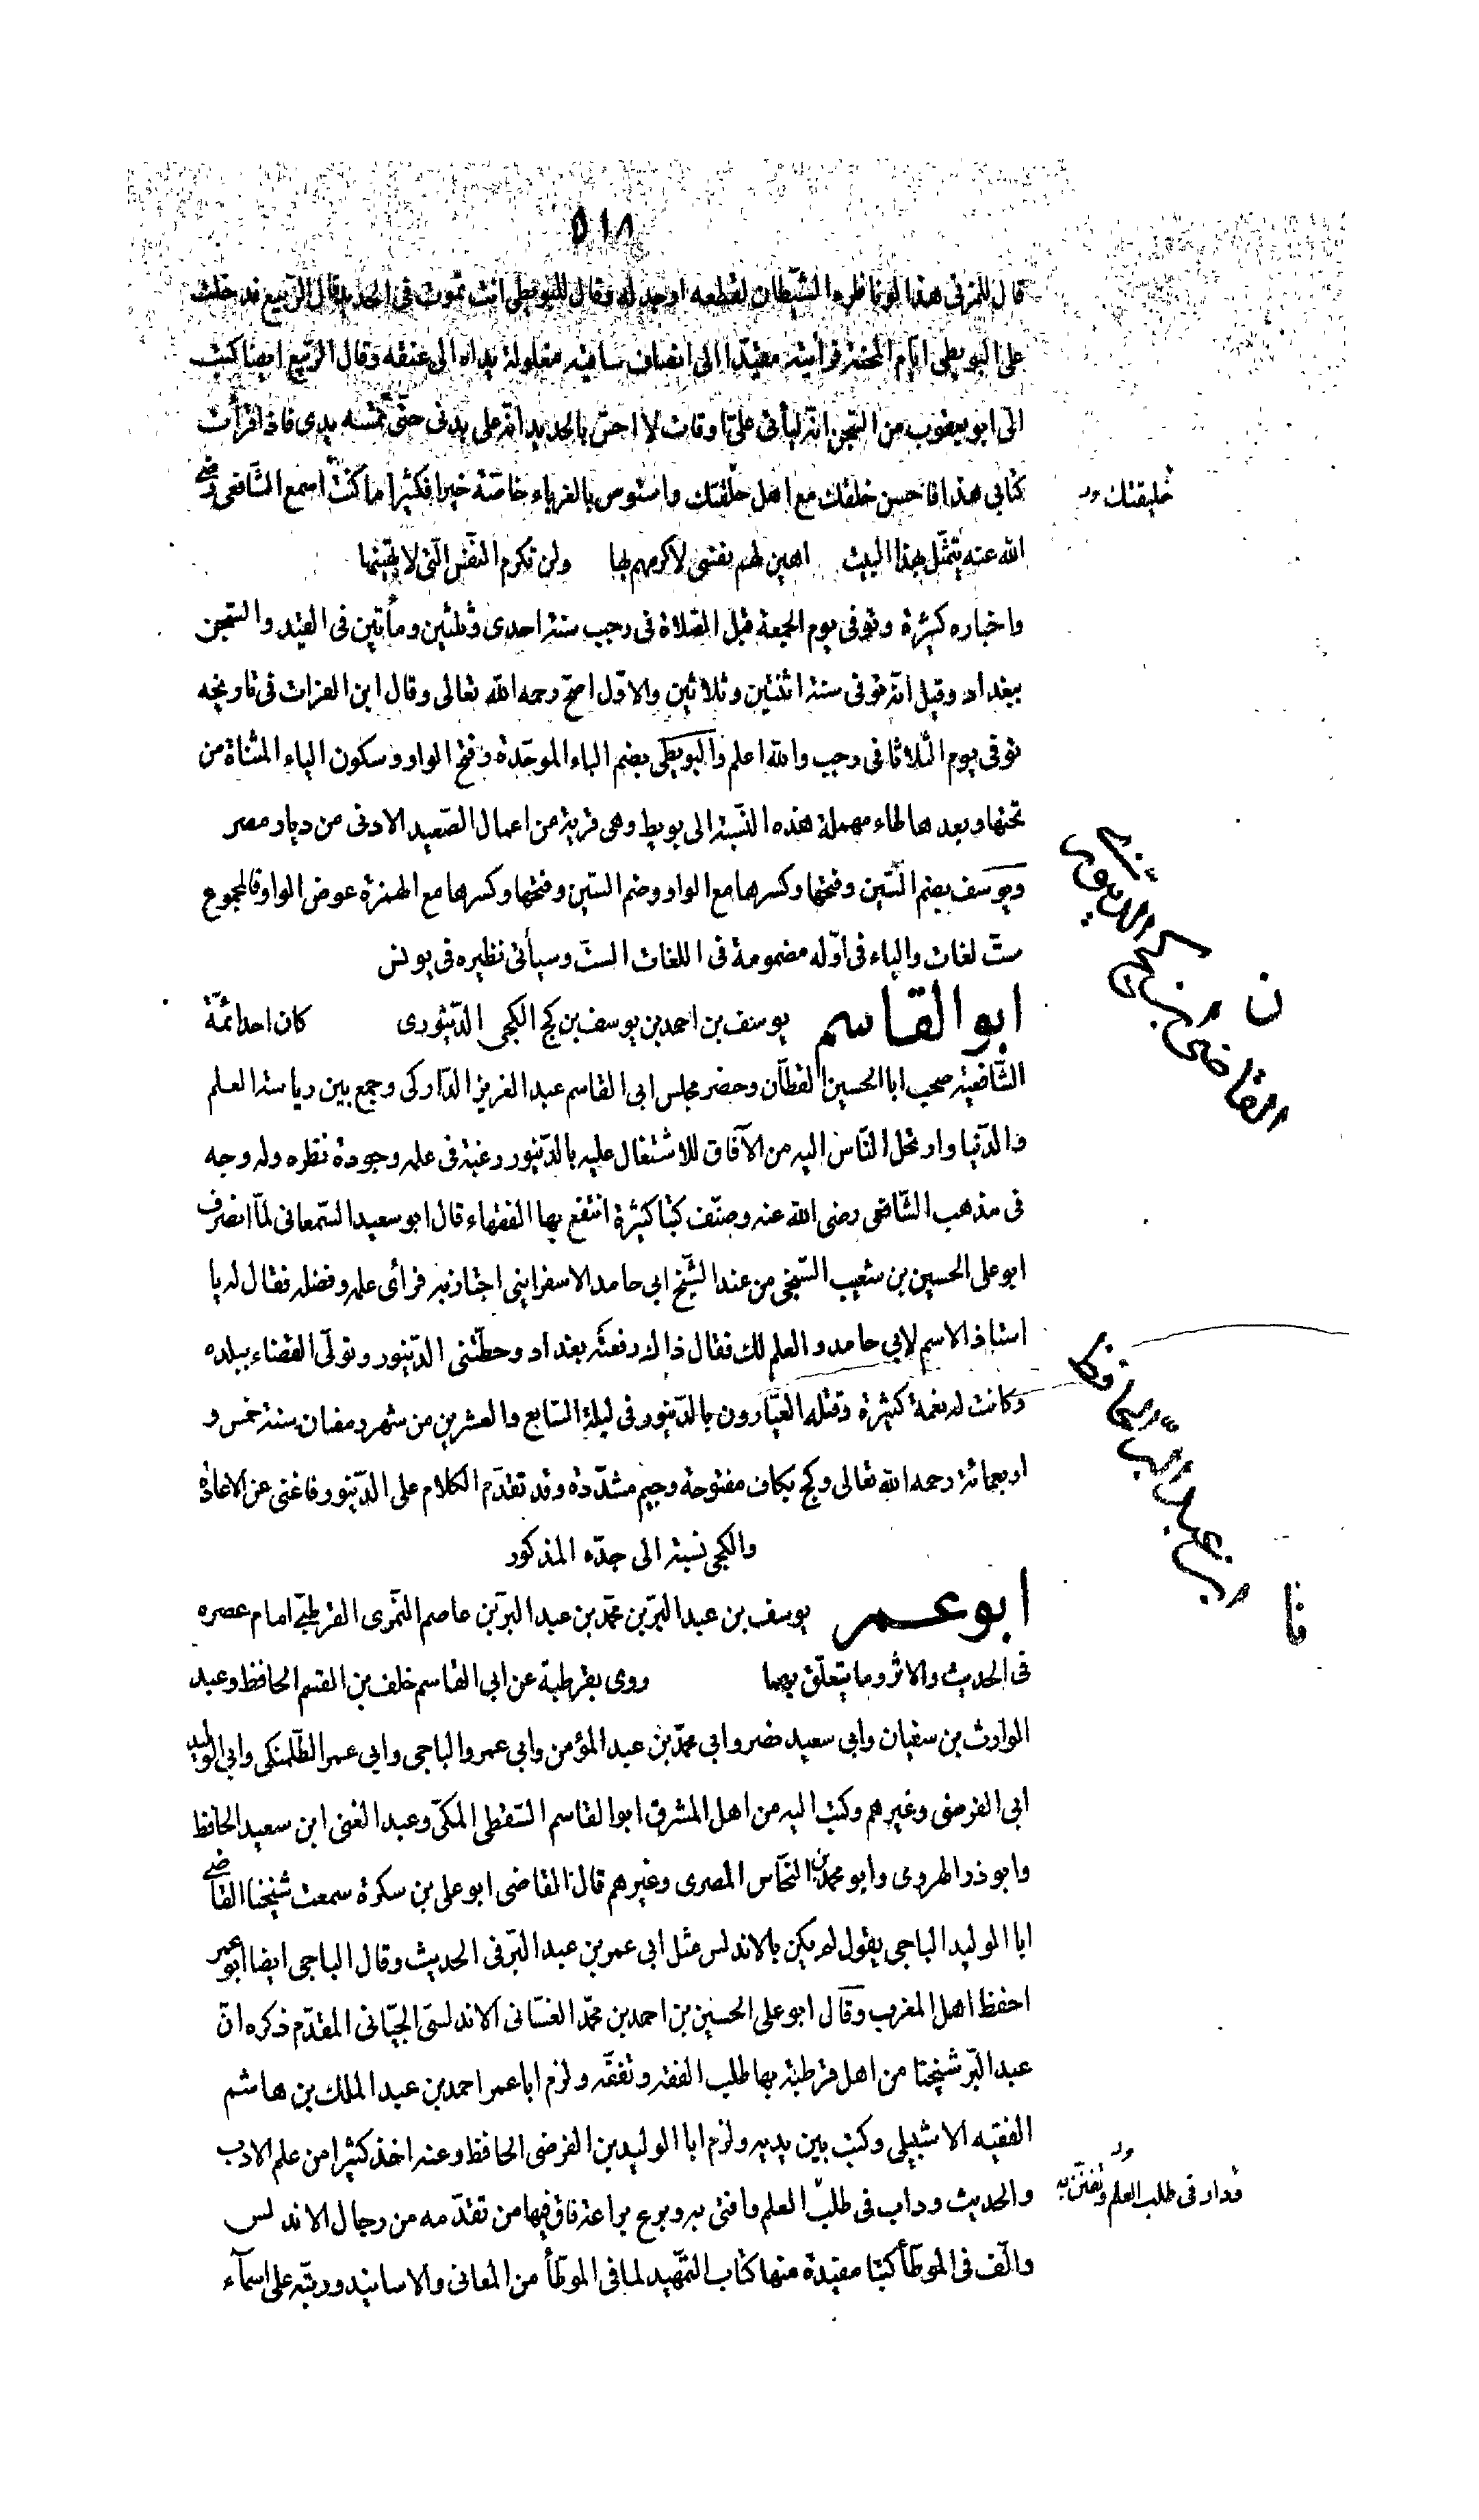 ٥١٨
قال للمزنى هذا لو ناظره الشيطان لقطعه او جدله وقال للبويطى انت تموت فى الحديد قال الربيع فدخلت
على البويطى ايام المحنة فرأيته مقيّدا الى انصاف ساقيه مغلولة يداه الى عنقه وقال الربيع ايضا كتب
الىّ ابو يعقوب من السّجن انّه ليأتى علىّ اوقات لا احسّ بالحديد انّه على بدنى حتّى تمسّه يدى فاذا قرأت
كتابى هذا فاحسن خلقك مع اهل حلقتك واستوص بالغرباء خاصّة خيرا فكثيرا ما كنت اسمع الشّافعى رضى
خليقتك
الله عنه يتمثّل بهذا البيت اهين لهم نفسى لاكرمهم بها ولن تكرم النّفس الّتى لا تهينها
واخباره كثيرة وتوفى يوم الجمعة قبل الصّلاة فى رجب سنة احدى وثلثين ومأتين فى القيد والسّجن
ببغداد وقيل انّه توفى سنة اثنتين وثلاثين والاوّل اصحّ رحمه الله تعالى وقال ابن الفرات فى تاريخه
توفى يوم الثلاثا فى رجب والله اعلم والبويطى بضم الباء الموحّدة وفتح الواو وسكون الياء المثناة من
تحتها وبعدها طاء مهملة هذه النّسبة الى بويط وهى قرية من اعمال الصّعيد الادنى من ديار مصر
ويوسف بضم السّين وفتحها وكسرها مع الواو وضم السّين وفتحها وكسرها مع الهمزة عوض الواو فالمجموع
ستّ لغات والياء فى اوّله مضمومة فى اللغات الستّ وسيأتى نظيره فى يونس
ابو القاسم يوسف بن احمد بن يوسف بن كج الكجى الدّينورى كان احد ائمّة
ن القاضى بن كج الدينورى
الشّافعيّة صحب ابا الحسين القطّان وحضر مجلس ابى القاسم عبد العزيز الدّاركى وجمع بين رياسة العلم
والدّنيا وارتحل النّاس اليه من الآفاق للاشتغال عليه بالدّينور رغبة فى علمه وجودة نظره وله وجه
فى مذهب الشّافعى رضى الله عنه وصنّف كتبا كثيرة انتفع بها الفقهاء قال ابو سعيد السّمعانى لمّا انصرف
ابو على الحسين بن شعيب السّنجى من عند الشّيخ ابي حامد الاسفراينى اجتاز به فرأى علمه وفضله فقال له يا
استاذ الاسم لابي حامد والعلم لك فقال ذاك رفعته بغداد وحطّتنى الدّينور وتولّى القضاء ببلده
وكانت له نعمة كثيرة وقتله العيّارون بالدّينور فى ليلة السّابع والعشرين من شهر رمضان سنة خمس و
اربعمائة رحمه الله تعالى وكج بكاف مفتوحة وجيم مشدّدة وقد تقدّم الكلام على الدّينور فاغنى عن الاعادة
والكجى نسبة الى جدّه المذكور
ابو عمر يوسف بن عبد البرّ بن محمّد بن عبد البرّ بن عاصم النّمرى القرطبى امام عصره
ابن عبد البرّ الحافظ
فى الحديث والاثر وما يتعلّق بهما روى بقرطبة عن ابى القاسم خلف بن القسم الحافظ وعبد
الوارث بن سفيان وابى سعيد نصر وابي محمّد بن عبد المؤمن وابي عمرو الباجى وابي عمر الطّلمنكى وابي الوليد
ابى الفرضى وغيرهم وكتب اليه من اهل المشرق ابو القاسم السّقطى المكّى وعبد الغنى ابن سعيد الحافظ
وابو ذر الهروى وابو محمد بن النحّاس المصرى وغيرهم قال القاضى ابو على بن سكرة سمعت شيخنا القاضى
ابا الوليد الباجى يقول لم يكن بالاندلس مثل ابى عمر بن عبد البرّ فى الحديث وقال الباجى ايضا ابو عمر
احفظ اهل المغرب وقال ابو على الحسين بن احمد بن محمّد الغسّانى الاندلسى الجيّانى المقدّم ذكره انّ
عبد البرّ شيخنا من اهل قرطبة بها طلب الفقه وتفقّه ولزم ابا عمر احمد بن عبد الملك بن هاشم
الفقيه الاشبيلى وكتب بين يديه ولزم ابا الوليد بن الفرضى الحافظ وعنه اخذ كثيرا من علم الادب
والحديث وداب فى طلب العلم وافتى به وبرع براعة فاق فيها من تقدّمه من رجال الاندلس
فى طلب العلم وتفنّن به
والّف فى الموطّأ كتبا مفيدة منها كتاب التّمهيد لما فى الموطّأ من المعانى والاسانيد ورتّبه على اسمآء